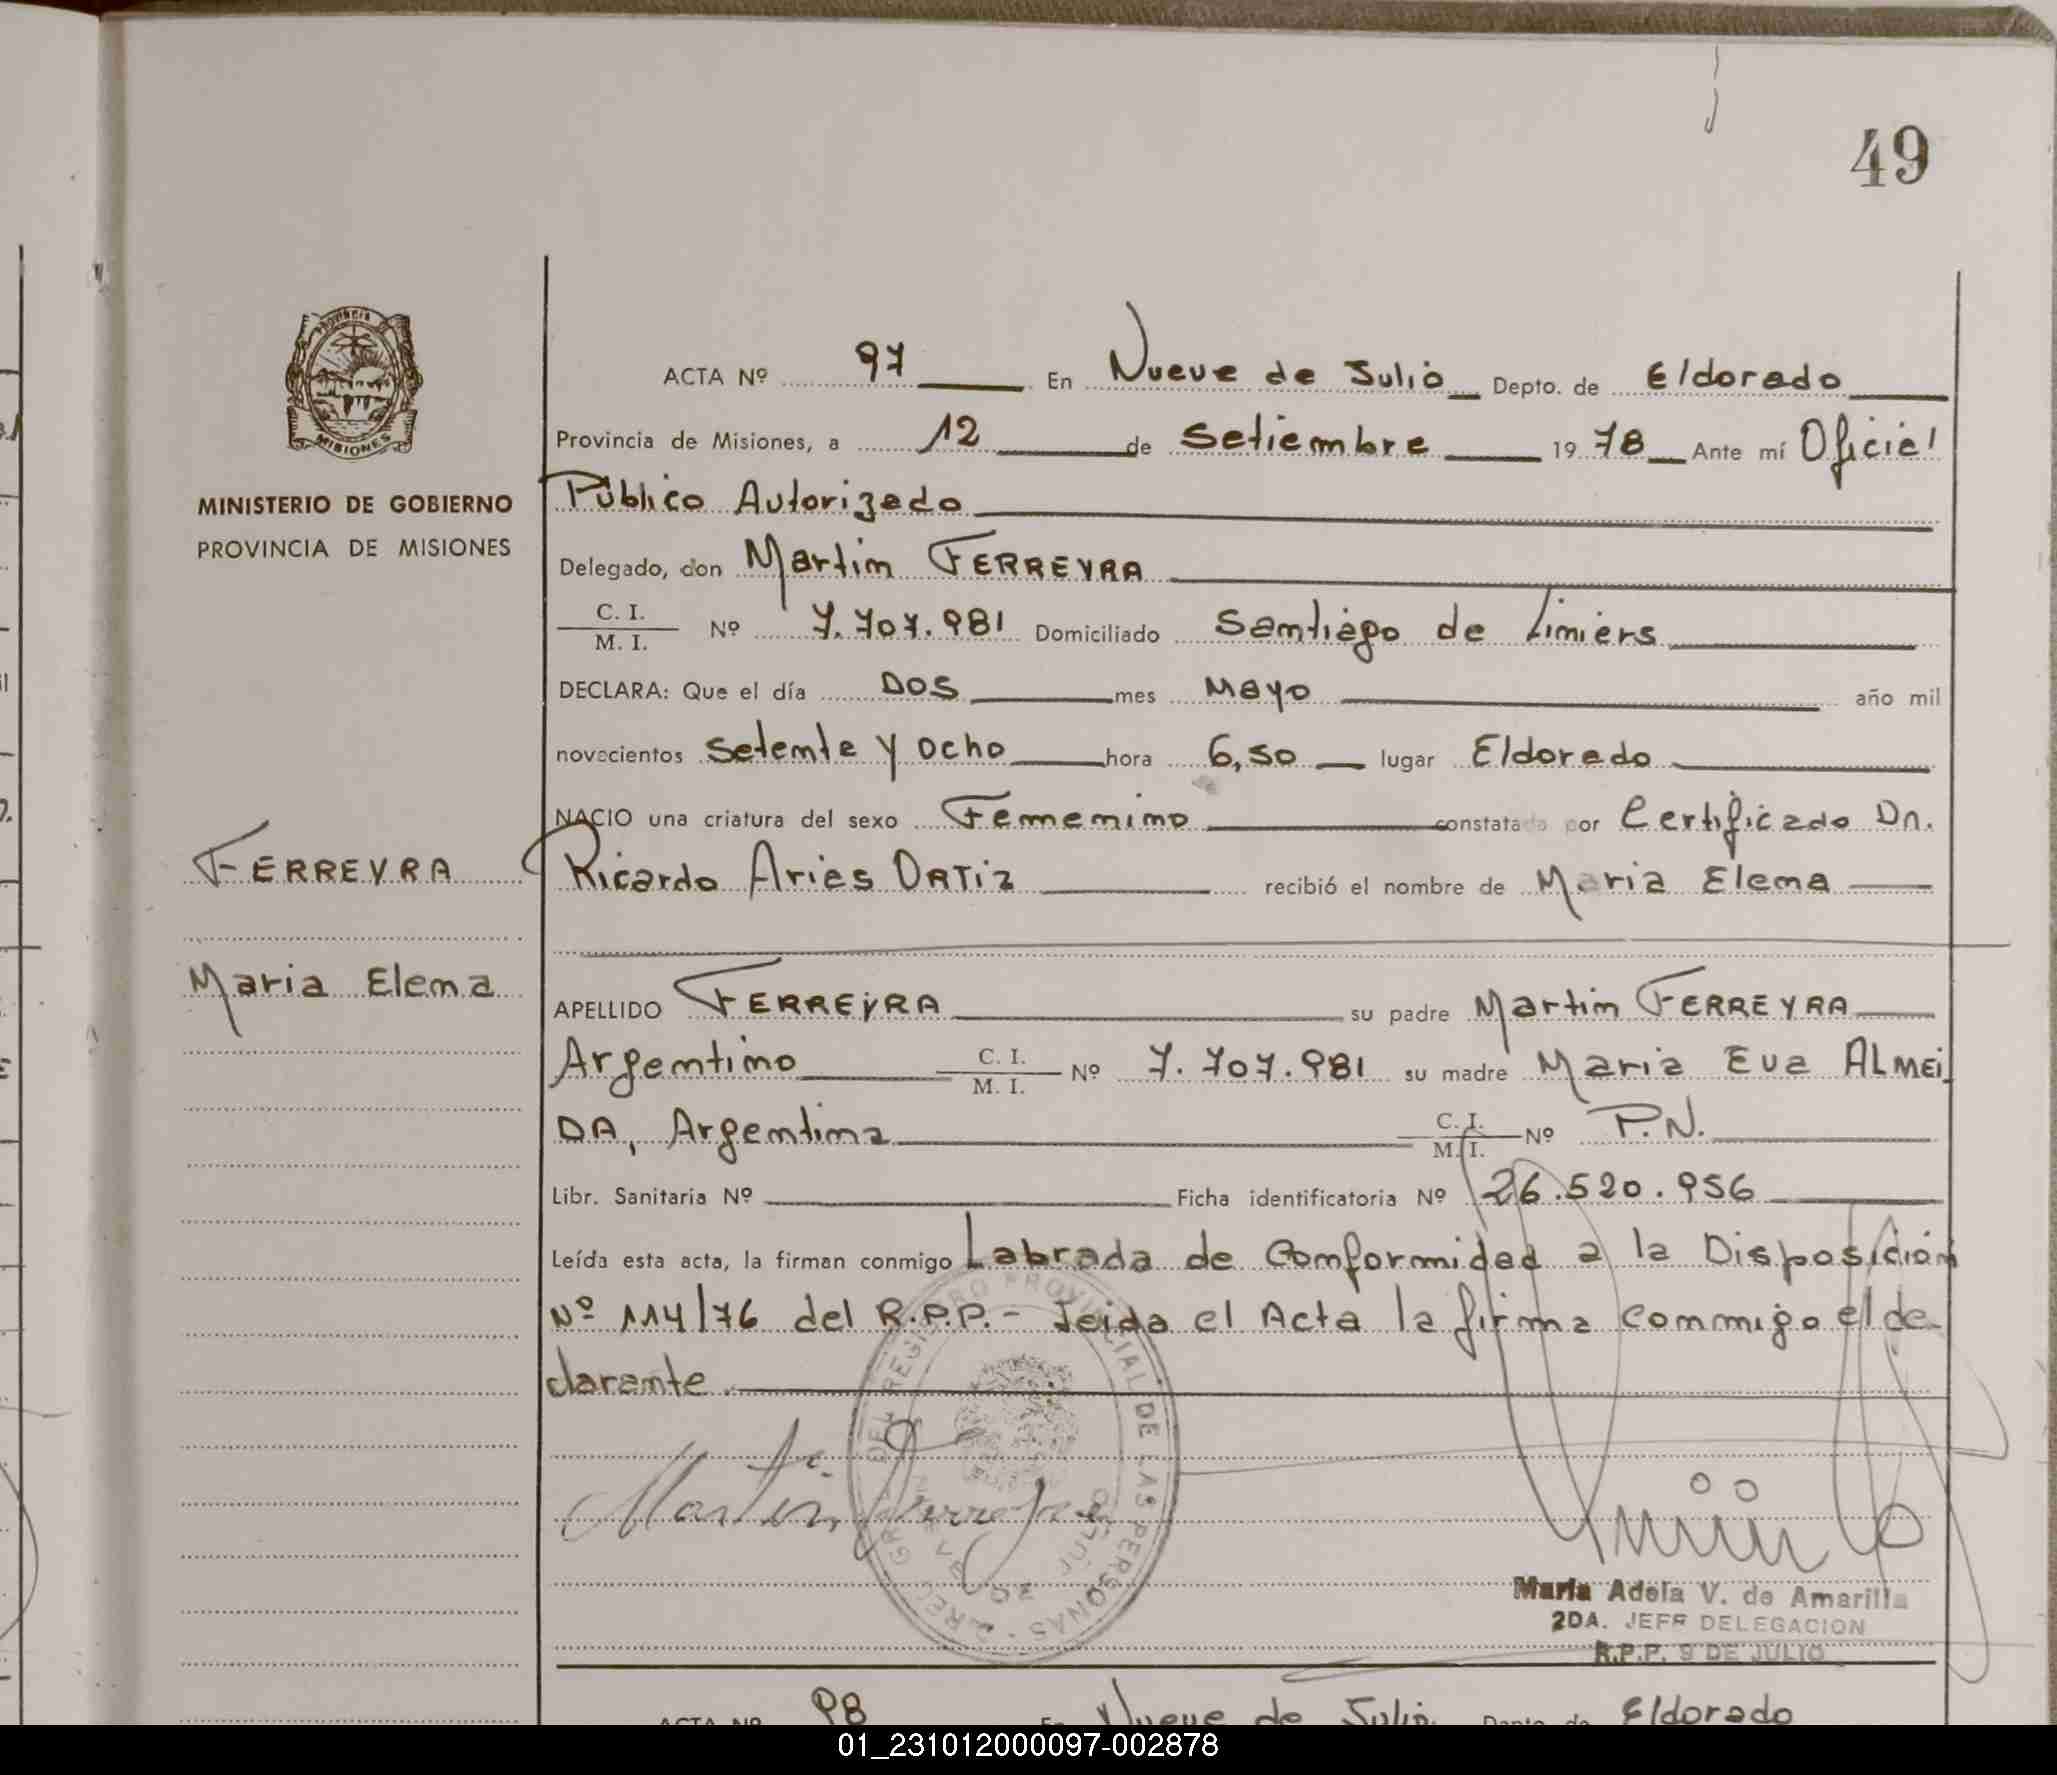 49
Provincia
MISIONES
MINISTERIO DE GOBIERNO
PROVINCIA DE MISIONES
FERREYRA
Maria Elena
ACTA Nº 97 En Nueve de Julio Depto. de Eldorado
Provincia de Misiones, a 12 de Setiembre 1978 Ante mí Oficial
Público Autorizado
Delegado, don Martin FERREYRA
C. I.
M. I. Nº 7.707.981 Domiciliado Santiago de Liniers
DECLARA: Que el día DOS mes Mayo año mil
novecientos Setenta y ocho hora 6,50 lugar Eldorado
NACIO una criatura del sexo Femenino constatada por Certificado Dn.
Ricardo Aries ORTiz recibió el nombre de Maria Elena
APELLIDO FERREYRA su padre Martin FERREYRA
Argentino C. I. M. I. Nº 7.707.981 su madre Maria Eva ALMEi
DA, Argentina C. I. M. I. Nº P.N.
Libr. Sanitaria Nº Ficha identificatoria Nº 26.520.956
Leída esta acta, la firman conmigo Labrada de Conformidad a la Disposición
Nº 114/76 del R.P.P.- Leida el Acta la firma conmigo el de-
clarante
Martin Ferreyra
DEL REGISTRO PROVINCIAL DE LAS PERSONAS
Maria Adela V. de Amarilla
2DA. JEFE DELEGACION
R.P.P. 9 DE JULIO
ACTA Nº 98 En Nueve de Julio Depto. de Eldorado
01_231012000097-002878